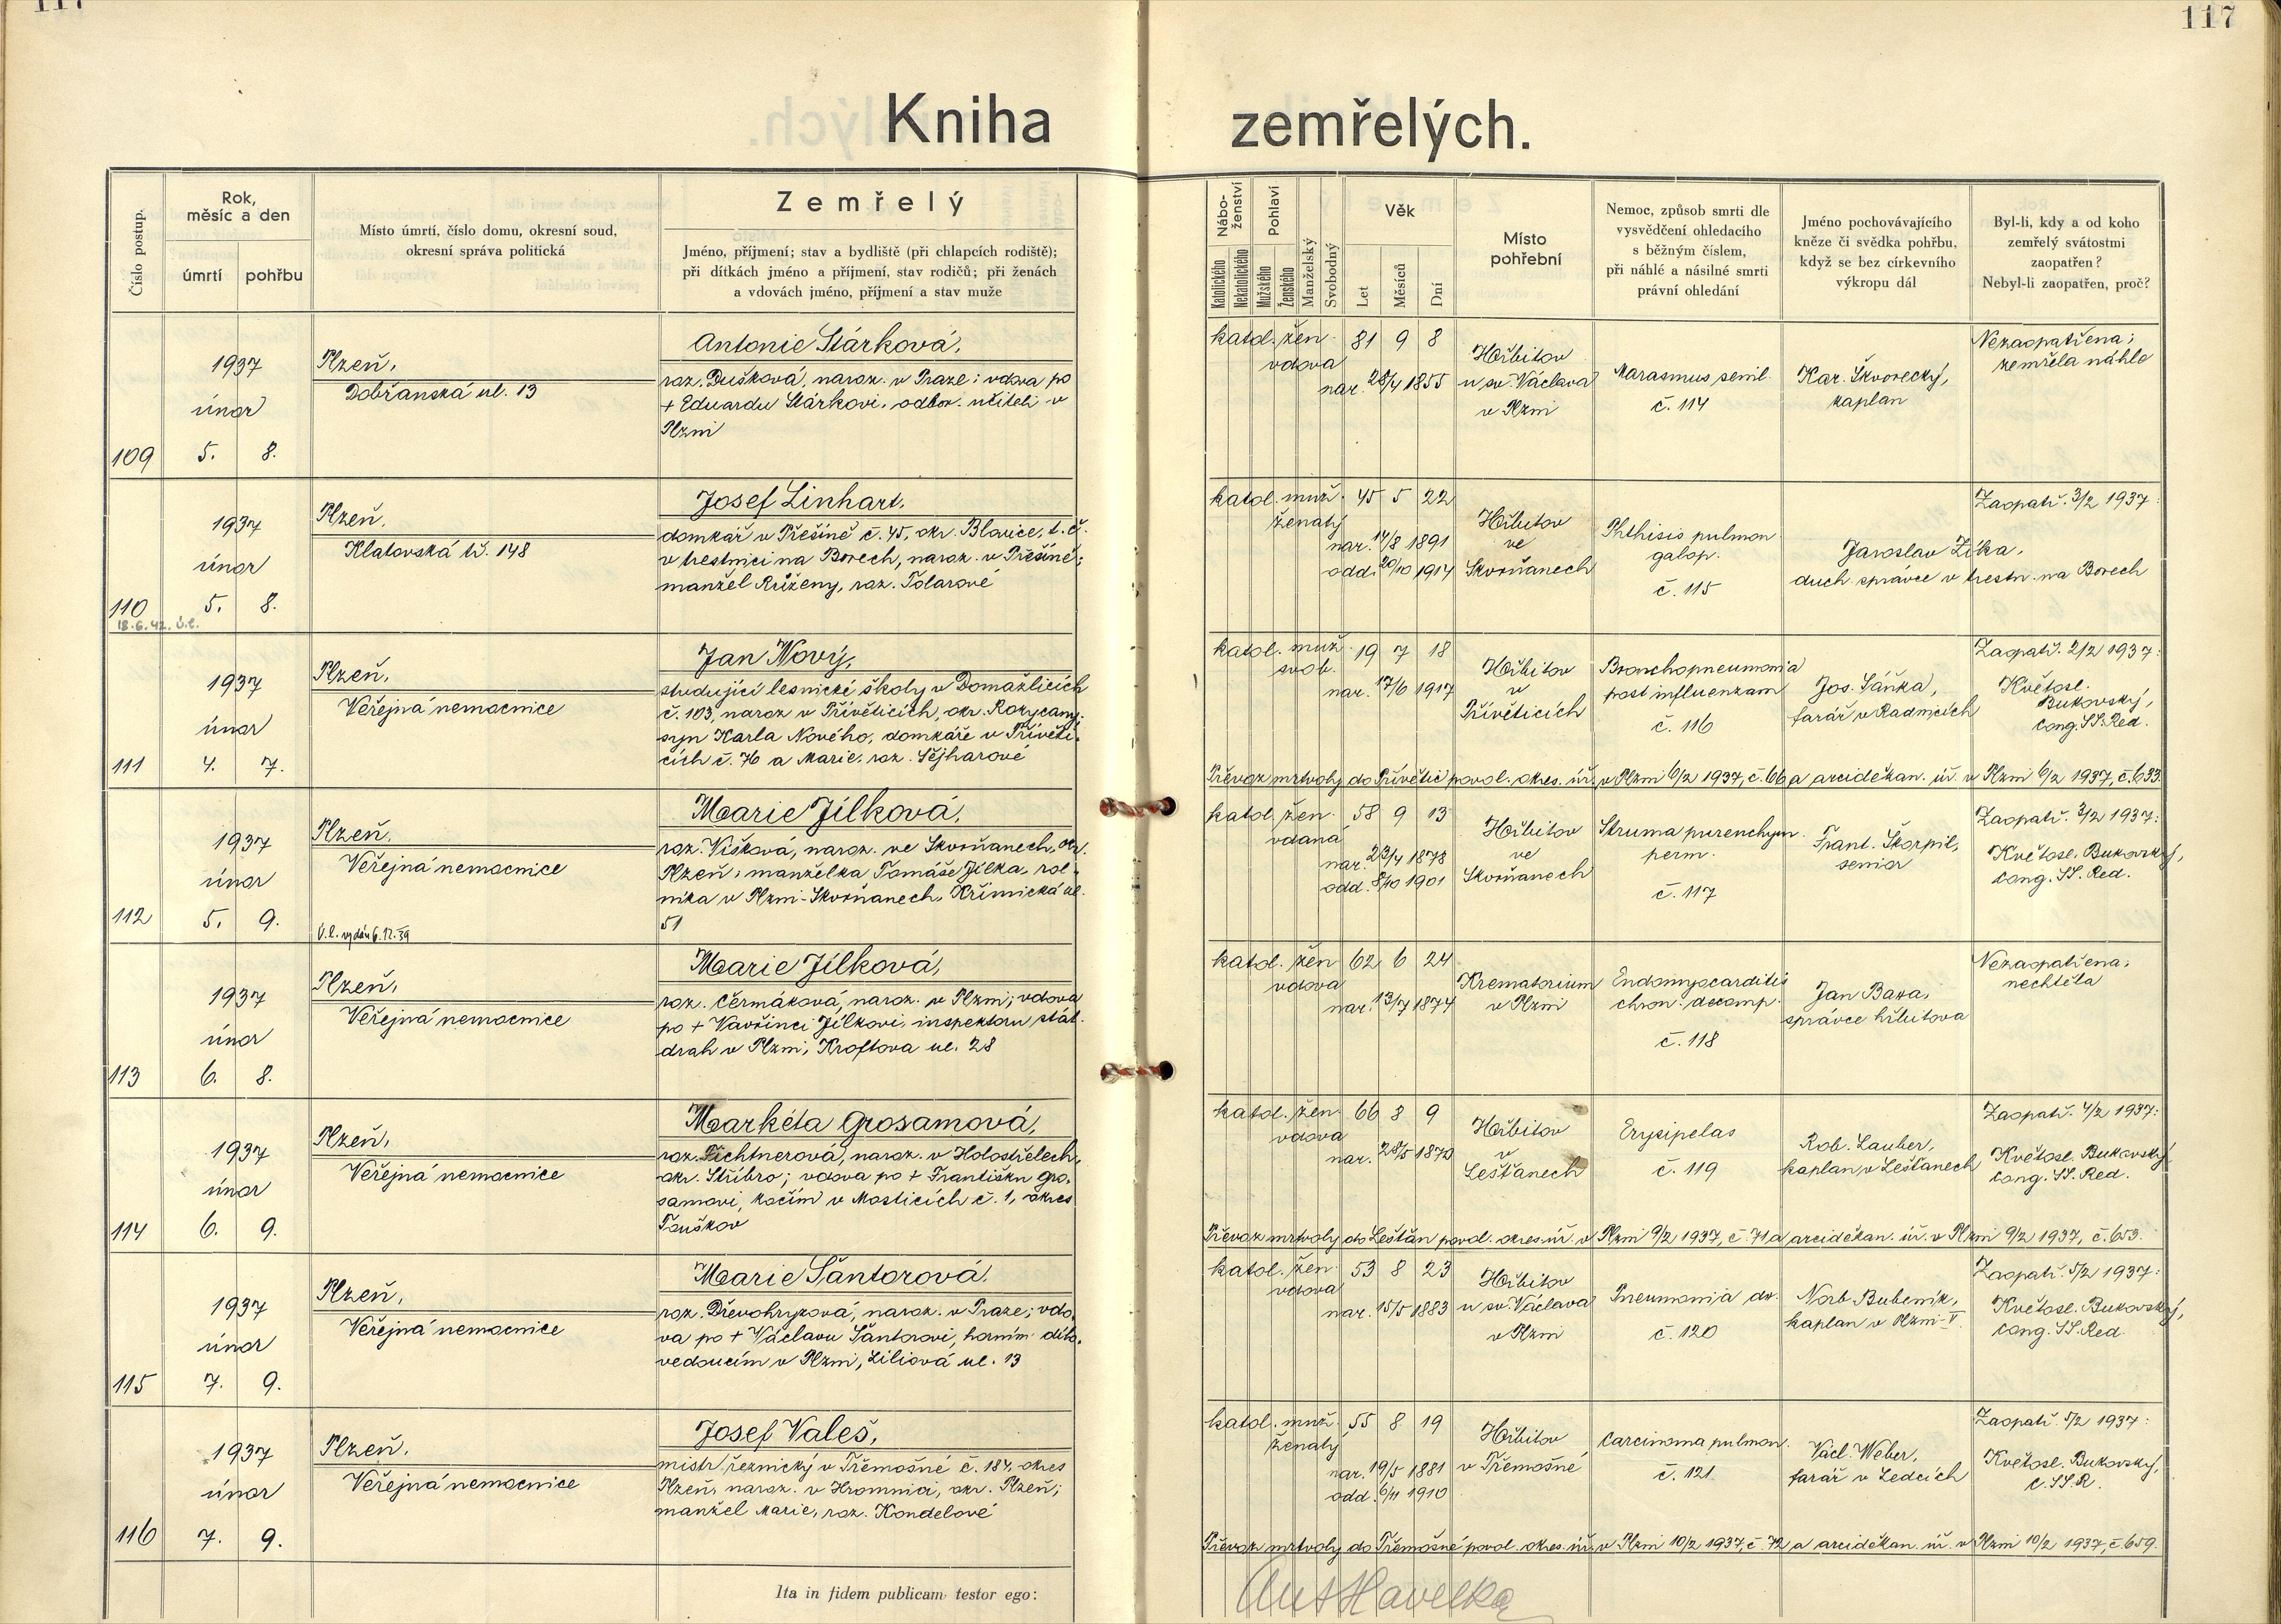 117
117
Kniha zemřelých.
Číslo postup.
Rok,
měsíc a den
úmrtí
pohřbu
Místo úmrtí, číslo domu, okresní soud,
okresní správa politická
Zemřelý
Jméno, příjmení; stav a bydliště (při chlapcích rodiště);
při dítkách jméno a příjmení, stav rodičů; při ženách
a vdovách jméno, příjmení a stav muže
Nábo-
ženství
Katolického
Nekatolického
Pohlaví
Mužského
Ženského
Manželský
Svobodný
Věk
Let
Měsíců
Dní
Místo
pohřební
Nemoc, způsob smrti dle
vysvědčení ohledacího
s běžným číslem,
při náhlé a násilné smrti
právní ohledání
Jméno pochovávajícího
kněze či svědka pohřbu,
když se bez církevního
výkropu dál
Byl-li, kdy a od koho
zemřelý svátostmi
zaopatřen?
Nebyl-li zaopatřen, proč?
109
1937
únor
5. 8.
Plzeň,
Dobřanská ul. 13
Antonie Stárková,
roz. Dušková, naroz. v Praze; vdova po
+ Eduardu Stárkovi, odbor. učiteli v
Plzni
katol. žen. 81 9 8
vdova
nar. 28/4 1855
Hřbitov
u sv. Václava
v Plzni
Marasmus senil.
č. 114
Kar. Škvorecký,
kaplan
Nezaopatřena;
zemřela náhle
110
18.6.42. ú.l.
1937
únor
5. 8.
Plzeň,
Klatovská tř. 148
Josef Linhart,
domkář v Přešíně č. 45, okr. Blovice, t. č.
v trestnici na Borech, naroz. v Přešíně;
manžel Růženy, roz. Tolarové
katol. muž. 45 5 22
ženatý
nar. 14/8 1891
odd. 20/10 1914
Hřbitov
ve
Skvrňanech
Phthisis pulmon.
galop.
č. 115
Jaroslav Zíka,
duch. správce v trestn. na Borech
Zaopatř. 3/2 1937:
111
1937
únor
4. 7.
Plzeň,
Veřejná nemocnice
Jan Nový,
studující lesnické školy v Domažlicích
č. 103, naroz v Přívěticích, okr. Rokycany;
syn Karla Nového, domkáře v Přívěti-
cích č. 76 a Marie, roz. Sejharové
katol. muž. 19 7 18
svob.
nar. 17/6 1917
Hřbitov
v
Přívěticích
Bronchopneumonia
post influenzam
č. 116
Jos. Sáňka,
farář v Radnicích
Zaopatř. 2/2 1937:
Květosl.
Bukovský,
Cong. SS. Red.
Převoz mrtvoly do Přívětic povol. okres. úř. v Plzni 6/2 1937, č. 66 a arciděkan. úř. v Plzni 6/2 1937, č. 633.
112
1937
únor
5. 9.
Plzeň,
Veřejná nemocnice
Ú.l. vydán 6.12.39
Marie Jílková,
roz. Víšková, naroz. ve Skvrňanech, okr.
Plzeň; manželka Tomáše Jílka, rol-
níka v Plzni-Skvrňanech, Křimická ul.
51
katol. žen. 58 9 13
vdaná
nar. 23/4 1878
odd. 8/10 1901
Hřbitov
ve
Skvrňanech
Struma parenchym.
perm.
č. 117
Frant. Škorpil,
senior
Zaopatř. 3/2 1937:
Květosl. Bukovský,
Cong. SS. Red.
113
1937
únor
6. 8.
Plzeň,
Veřejná nemocnice
Marie Jílková,
roz. Čermáková, naroz. v Plzni; vdova
po + Vavřinci Jílkovi, inspektoru stát.
drah v Plzni, Kroftova ul. 28
katol. žen 62 6 24
vdova
nar. 13/7 1874
Krematorium
v Plzni
Endomyocarditis
chron. decomp.
č. 118
Jan Baxa,
správce hřbitova
Nezaopatřena;
nechtěla
114
1937
únor
6. 9.
Plzeň,
Veřejná nemocnice
Markéta Grosamová,
roz. Fichtnerová, naroz. v Holostřelech,
okr. Stříbro; vdova po + Františku Gro-
samovi, kočím v Mosticích č. 1, okres
Touškov
katol. žen. 66 8 9
vdova
nar. 28/5 1870
Hřbitov
v
Lešťanech
Erysipelas
č. 119
Rob. Lauber,
kaplan v Lešťanech
Zaopatř. 4/2 1937:
Květosl. Bukovský
Cong. SS. Red.
Převoz mrtvoly do Lešťan povol. okres. úř. v Plzni 9/2 1937, č. 71 a arciděkan. úř. v Plzni 9/2 1937, č. 653.
115
1937
únor
7. 9.
Plzeň,
Veřejná nemocnice
Marie Šantorová,
roz. Dřevohryzová, naroz. v Praze; vdo-
va po + Václavu Šantorovi, horním dílo-
vedoucím v Plzni, Liliová ul. 13
katol. žen. 53 8 23
vdova
nar. 15/5 1883
Hřbitov
u sv. Václava
v Plzni
Pneumonia dx.
č. 120
Norb. Bubeník,
kaplan v Plzni-V.
Zaopatř. 5/2 1937:
Květosl. Bukovský,
Cong. SS. Red.
116
1937
únor
7. 9.
Plzeň,
Veřejná nemocnice
Josef Valeš,
mistr řeznický v Třemošné č. 184, okres
Plzeň, naroz. v Hromnici, okr. Plzeň;
manžel Marie, roz. Kondelové
katol. muž. 55 8 19
ženatý
nar. 19/5 1881
odd. 6/11 1910
Hřbitov
v Třemošné
Carcinoma pulmon.
č. 121
Václ. Weber,
farář v Ledcích
Zaopatř. 5/2 1937:
Květosl. Bukovský,
C. SS. R.
Převoz mrtvoly do Třemošné povol. okres. úř. v Plzni 10/2 1937, č. 72 a arciděkan. úř. v Plzni 10/2 1937, č. 659.
Ita in fidem publicam testor ego:
Ant Havelka